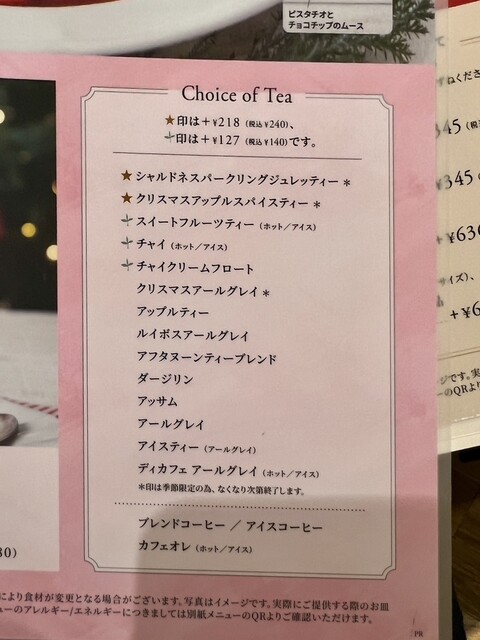 ピスタチオと
チョコチップのムース
Choice of Tea
★印は＋¥218（税込¥240）、
印は＋¥127（税込¥140）です。
★シャルドネスパークリングジュレッティー＊
★クリスマスアップルスパイスティー＊
スイートフルーツティー（ホット／アイス）
チャイ（ホット／アイス）
チャイクリームフロート
クリスマスアールグレイ＊
アップルティー
ルイボスアールグレイ
アフタヌーンティーブレンド
ダージリン
アッサム
アールグレイ
アイスティー（アールグレイ）
ディカフェ アールグレイ（ホット／アイス）
＊印は季節限定の為、なくなり次第終了します。
ブレンドコーヒー ／ アイスコーヒー
カフェオレ（ホット／アイス）
により食材が変更となる場合がございます。写真はイメージです。実際にご提供する際のお皿
ューのアレルギー/エネルギーにつきましては別紙メニューのQRよりご確認いただけます。
PR
80)
ねくださ
345（税
¥345（
＋¥636
イズ）、
＋¥6
ジです。実
ーのQRよ